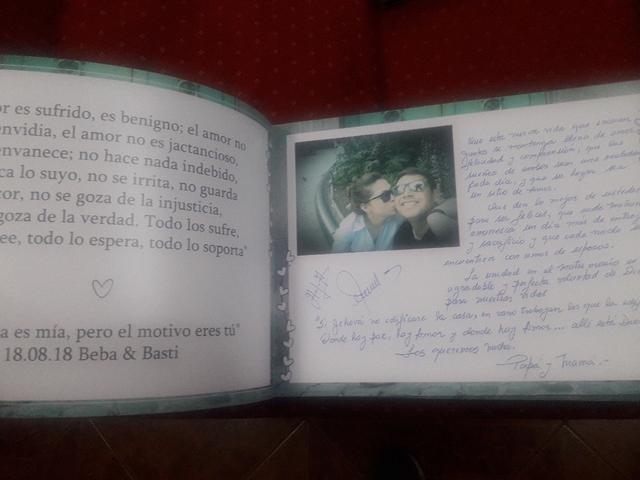 or es sufrido, es benigno; el amor no
envidia, el amor no es jactancioso,
envanece; no hace nada indebido,
ca lo suyo, no se irrita, no guarda
cor, no se goza de la injusticia,
goza de la verdad. Todo los sufre,
ee, todo lo espera, todo lo soporta"
a es mía, pero el motivo eres tú"
18.08.18 Beba & Basti
Que esta nueva vida que
juntos se mantenga llena de amor
felicidad y comprensión, que los
sueños de ambos sean una realidad
cada día, y que su hogar sea
un sitio de amor.
Que den lo mejor de ustedes
para ser felices, que cada mañana
amanezca un día más de
y sacrificio y que cada noche se
encuentren con amor de esposos.
La unidad en el matrimonio es
agradable y perfecta voluntad de Dios
para nuestras vidas
"Si Jehová no edificare la casa, en vano trabajan los que la
Donde hay paz, hay amor y donde hay amor... allí está Dios
Los queremos mucho.
Papá y Mamá.-